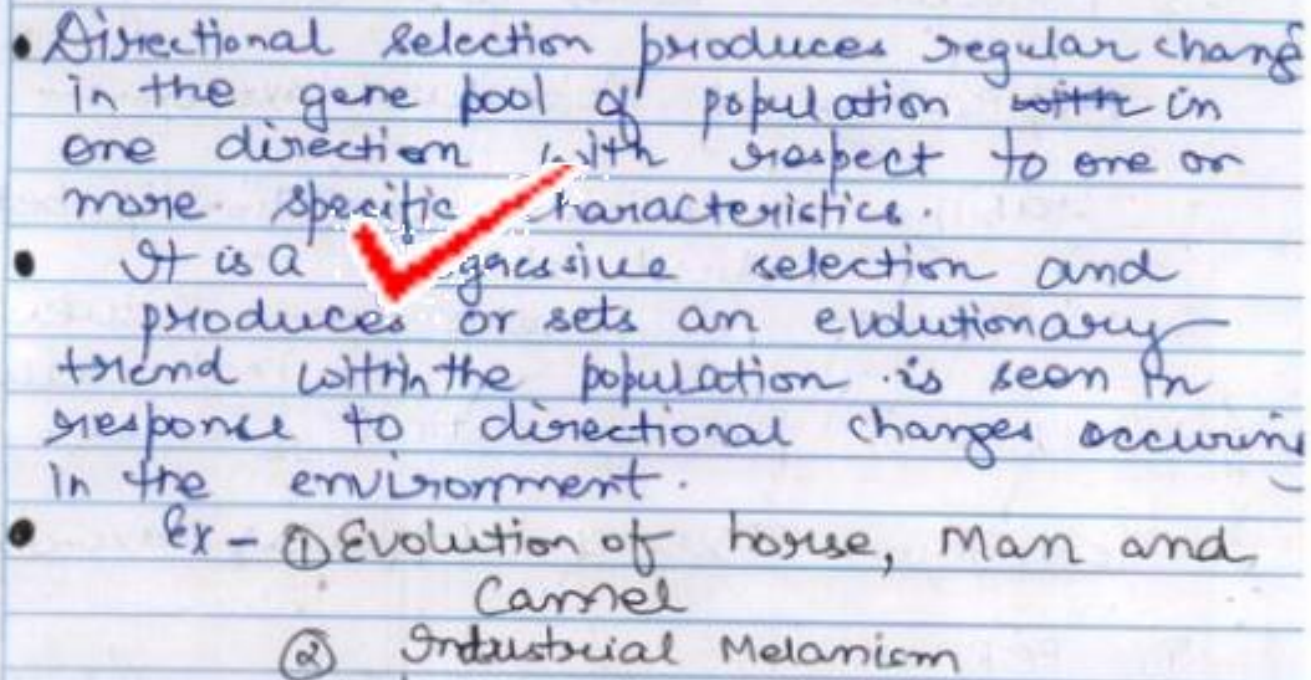 • Directional selection produces regular chang
in the gene pool of population with in
one direction with respect to one or
more specific characteristics.
• It is a gressive selection and
produces or sets an evolutionary
trend within the population is seen in
response to directional changes occuring
in the environment.
• Ex - ① Evolution of horse, Man and
Camel
② Industrial Melanism